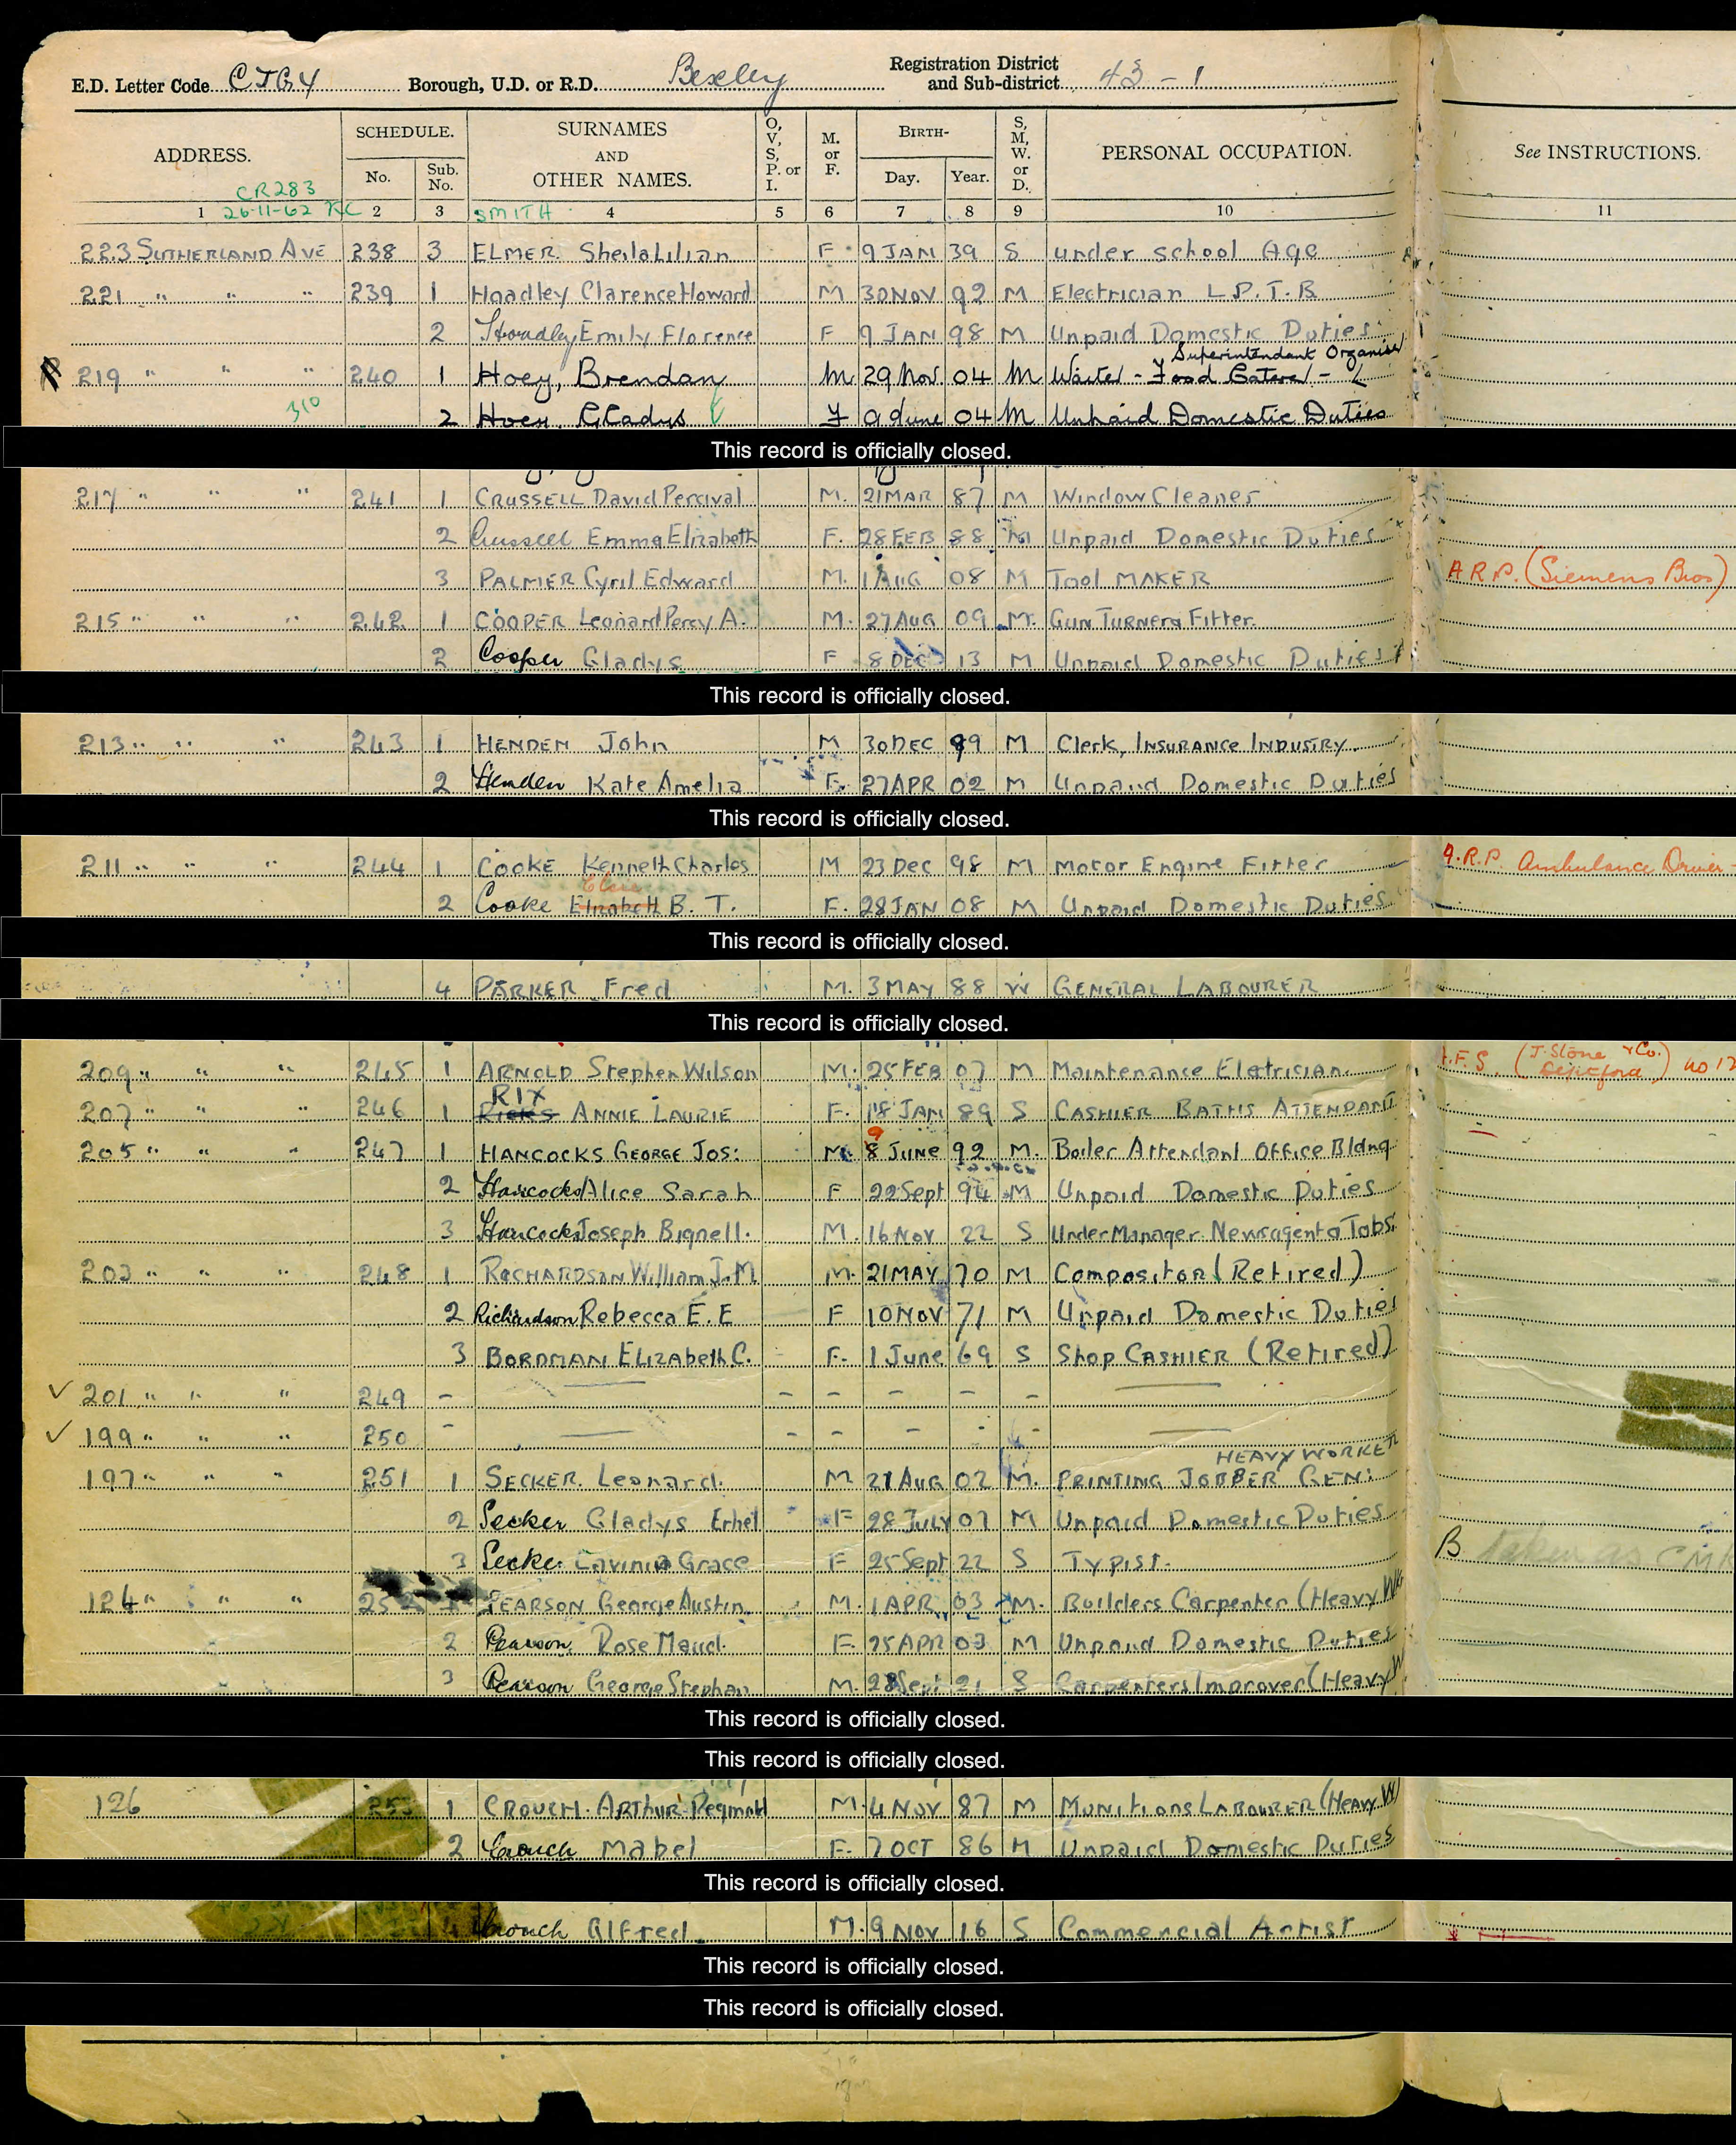 E.D. Letter Code CJGY Borough, U.D. or R.D. Bexley Registration District and Sub-district 43 - 1
ADDRESS. SCHEDULE. No. Sub. No. SURNAMES AND OTHER NAMES. O, V, S, P. or I. M. or F. BIRTH- Day. Year. S, M, W. or D. PERSONAL OCCUPATION. See INSTRUCTIONS.
CR283
1 26-11-62 2 3 SMITH 4 5 6 7 8 9 10 11
223 SUTHERLAND AVE 238 3 ELMER Sheila Lilian F 9 JAN 39 S under school Age
221 " " " 239 1 Hoadley Clarence Howard M 30 NOV 92 M Electrician L.P.T.B
2 Hoadley Emily Florence F 9 JAN 98 M Unpaid Domestic Duties
Superintendant Organiser
219 " " " 240 1 Hoey, Brendan M 29 Nov 04 M Waiter - Food Caterer -
310 2 Hoey, Gladys F 9 June 04 M Unpaid Domestic Duties
This record is officially closed.
217 " " " 241 1 CRUSSELL David Percival M. 21 MAR 87 M Window Cleaner
2 Crussell Emma Elizabeth F. 28 FEB 88 M Unpaid Domestic Duties
3 PALMER Cyril Edward M. 1 AUG 08 M Tool MAKER A.R.P. (Siemens Bros)
215 " " " 242 1 COOPER Leonard Percy A. M. 27 AUG 09 M. Gun Turner Fitter
2 Cooper Gladys F 8 DEC 13 M Unpaid Domestic Duties
This record is officially closed.
213 " " " 243 1 HENDEN John M 30 DEC 99 M Clerk, INSURANCE INDUSTRY.
2 Henden Kate Amelia F. 27 APR 02 M Unpaid Domestic Duties
This record is officially closed.
211 " " " 244 1 COOKE Kenneth Charles M 23 Dec 98 M Motor Engine Fitter A.R.P. Ambulance Driver
2 Cooke Elizabeth B. T. F. 28 JAN 08 M Unpaid Domestic Duties
This record is officially closed.
4 PARKER Fred M. 3 MAY 88 W GENERAL LABOURER
This record is officially closed.
209 " " " 245 1 ARNOLD Stephen Wilson M. 25 FEB 07 M Maintenance Eletrician. F.S. (J. Stone & Co. Deptford)
RIX
207 " " " 246 1 Ricks ANNIE LAURIE F. 18 JAN 89 S CASHIER BATHS ATTENDANT
9
205 " " " 247 1 HANCOCKS GEORGE JOS: M. 8 JUNE 92 M. Boiler Attendant Office Bldng
2 Hancocks Alice Sarah F 22 Sept 94 M Unpaid Domestic Duties
3 Hancocks Joseph Bignell. M. 16 NOV 22 S Under Manager Newsagent & Tobs:
203 " " " 248 1 RICHARDSON William J. M. M. 21 MAY 70 M Compositor (Retired)
2 Richardson Rebecca E. E F 10 NOV 71 M Unpaid Domestic Duties
3 BORDMAN ELIZAbeth C. F. 1 June 69 S Shop CASHIER (Retired)
✓ 201 " " " 249 - — - - - - - —
✓ 199 " " " 250 - — - - - - - —
HEAVY WORKER
197 " " " 251 1 SECKER. Leonard. M 21 AUG 02 M. PRINTING JOBBER GEN:
2 Secker Gladys Ethel F 28 JULY 07 M Unpaid Domestic Duties
3 Secker Lavinia Grace F 25 Sept 22 S Typist. B taken as
124 " " " 252 1 PEARSON George Austin. M. 1 APR 03 M. Builders Carpenter (Heavy
2 Pearson Rose Maud. F. 25 APR 03 M Unpaid Domestic Duties
3 Pearson George Stephan M. 28 Sept 21 S Carpenters Improver (Heavy
This record is officially closed.
This record is officially closed.
126 253 1 CROUCH. ARTHUR Reginald M. 4 NOV 87 M MUNITIONS LABOURER (HEAVY W
2 Crouch Mabel F. 7 OCT 86 M Unpaid Domestic Duties
This record is officially closed.
4 Crouch Alfred. M. 9 NOV 16 S Commercial Artist
This record is officially closed.
This record is officially closed.